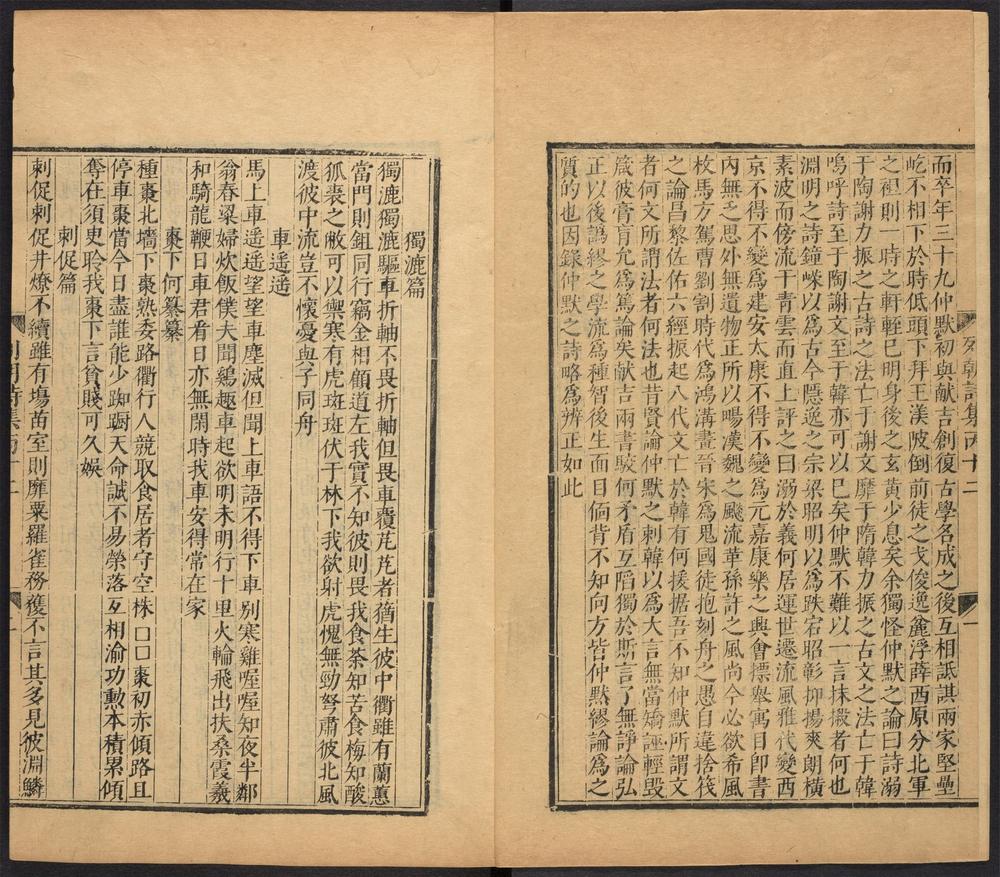 而卒年三十九仲默初與献吉創復古學名成之後互相詆諆兩家堅壘
屹不相下於時低頭下拜王渼陂倒前徒之戈俊逸麄浮薛西原分北軍
之袒則一時之軒輊已明身後之玄黃少息矣余獨怪仲默之論曰詩溺
于陶謝力振之古詩之法亡于謝文靡于隋韓力振之古文之法亡于韓
嗚呼詩至于陶謝文至于韓亦可以已矣仲默不難以一言抹摋者何也
淵明之詩鍾嶸以爲古今隱逸之宗梁昭明以爲跌宕昭彰抑揚爽朗橫
素波而傍流干青雲而直上評之曰溺於義何居運世遷流風雅代變西
京不得不變爲建安太康不得不變爲元嘉康樂之興會摽舉寓目即書
內無乏思外無遺物正所以暢漢魏之飈流革孫許之風尚今必欲希風
枚馬方駕曹劉割時代爲鴻溝畫晉宋爲鬼國徒抱刻舟之愚自違捨筏
之論昌黎佐佑六經振起八代文亡於韓有何援据吾不知仲默所謂文
者何文所謂法者何法也昔賢論仲默之刺韓以爲大言無當矯誣輕毀
箴彼膏肓允爲篤論矣献吉兩書駁何矛盾互陷獨於斯言了無諍論弘
正以後譌繆之學流爲種智後生面目偭背不知向方皆仲默繆論爲之
質的也因錄仲默之詩略爲辨正如此
列朝詩集丙十二
一
獨漉篇
獨漉獨漉驅車折軸不畏折軸但畏車覆芃芃者蕕生彼中衢雖有蘭蕙
當門則鉏同行竊金相顧道左我實不知彼則畏我食荼知苦食梅知酸
狐裘之敝可以禦寒有虎斑斑伏于林下我欲射虎愧無勁弩肅彼北風
渡彼中流豈不懷憂與子同舟
車遥遥
馬上車遥遥望望車塵滅但聞上車語不得下車别寒雞喔喔知夜半鄰
翁舂梁婦炊飯僕夫聞鷄趣車起欲明未明行十里火輪飛出扶桑霞羲
和騎龍鞭日車君看日亦無閑時我車安得常在家
棗下何纂纂
種棗北墻下棗熟委路衢行人競取食居者守空株口口棗初亦傾路且
停車棗當今日盡誰能少踟蹰天命誠不易榮落互相渝功勲本積累傾
奪在須臾聆我棗下言貧賤可久娛
刺促篇
刺促刺促井燎不續雖有塲苗室則靡粟羅雀務獲不言其多見彼淵鱗